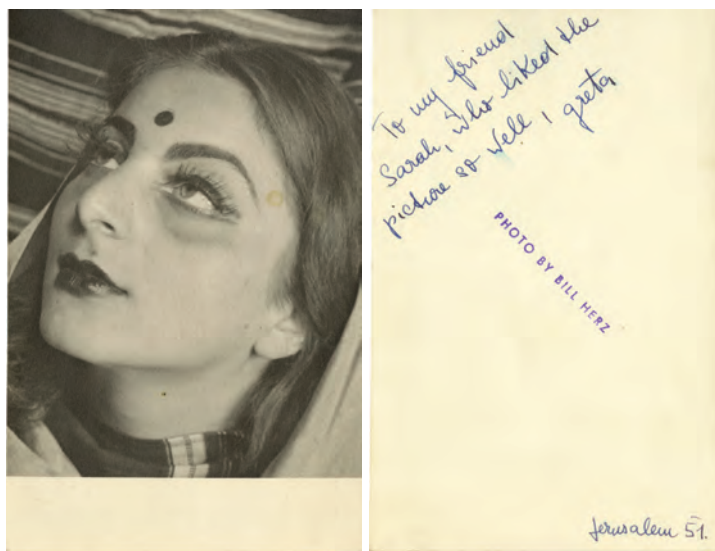 To my friend
Sarah, who liked the
picture so well, greta
PHOTO BY BILL HERZ
Jerusalem 51.